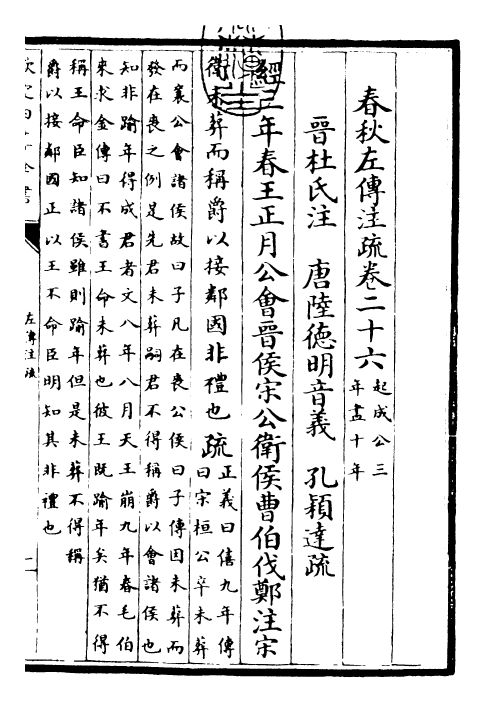 春秋左傳注疏卷二十六起成公三
年盡十年
晉杜氏注　唐陸德明音義　孔穎達疏
經三年春王正月公會晉侯宋公衛侯曹伯伐鄭注宋
衛未葬而稱爵以接鄰國非禮也疏正義曰僖九年傳
曰宋桓公卒未葬
而襄公會諸侯故曰子凡在喪公侯曰子傳因未葬而
發在喪之例是先君未葬嗣君不得稱爵以會諸侯也
知非踰年得成君者文八年八月天王崩九年春毛伯
來求金傳曰不書王命未葬也彼王既踰年矣猶不得
稱王命臣知諸侯雖則踰年但是未葬不得稱
爵以接鄰國正以王不命臣明知其非禮也
欽定四庫全書
左傳注疏
一